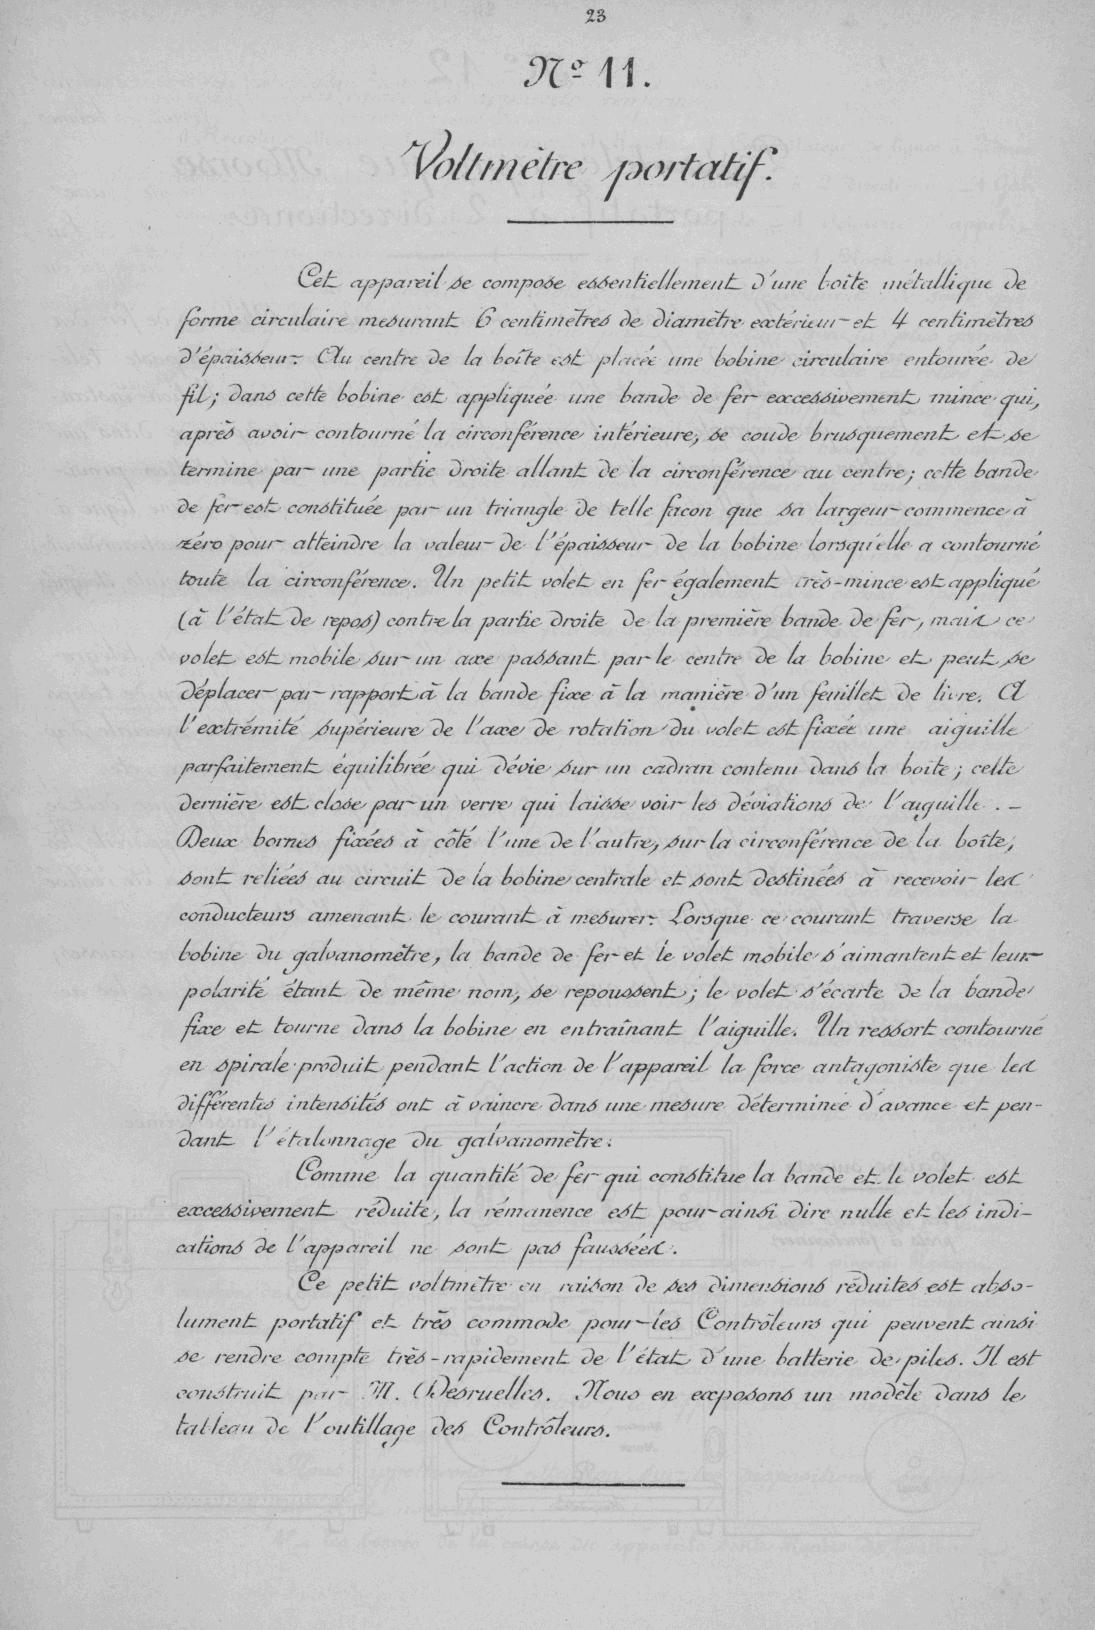 23
Nº 11.
Voltmètre portatif.
Cet appareil se compose essentiellement d'une boîte métallique de
forme circulaire mesurant 6 centimètres de diamètre extérieur et 4 centimètres
d'épaisseur. Au centre de la boîte est placée une bobine circulaire entourée de
fil; dans cette bobine est appliquée une bande de fer excessivement mince qui,
après avoir contourné la circonférence intérieure, se coude brusquement et se
termine par une partie droite allant de la circonférence au centre; cette bande
de fer est constituée par un triangle de telle facon que sa largeur commence à
zéro pour atteindre la valeur de l'épaisseur de la bobine lorsqu'elle a contourné
toute la circonférence. Un petit volet en fer également très-mince est appliqué
(à l'état de repos) contre la partie droite de la première bande de fer, mais ce
volet est mobile sur un axe passant par le centre de la bobine et peut se
déplacer par rapport à la bande fixe à la manière d'un feuillet de livre. A
l'extrémité supérieure de l'axe de rotation du volet est fixée une aiguille
parfaitement équilibrée qui dévie sur un cadran contenu dans la boîte; cette
dernière est close par un verre qui laisse voir les déviations de l'aiguille. –
Deux bornes fixées à côté l'une de l'autre, sur la circonférence de la boîte,
sont reliées au circuit de la bobine centrale et sont destinées à recevoir les
conducteurs amenant le courant à mesurer. Lorsque ce courant traverse la
bobine du galvanomètre, la bande de fer et le volet mobile s'aimantent et leur
polarité étant de même nom, se repoussent; le volet s'écarte de la bande
fixe et tourne dans la bobine en entraînant l'aiguille. Un ressort contourné
en spirale produit pendant l'action de l'appareil la force antagoniste que les
différentes intensités ont à vaincre dans une mesure déterminée d'avance et pen-
dant l'étalonnage du galvanomètre.
Comme la quantité de fer qui constitue la bande et le volet est
excessivement réduite, la rémanence est pour ainsi dire nulle et les indi-
cations de l'appareil ne sont pas faussées.
Ce petit voltmètre en raison de ses dimensions réduites est abso-
lument portatif et très commode pour les Contrôleurs qui peuvent ainsi
se rendre compte très-rapidement de l'état d'une batterie de piles. Il est
construit par M. Desruelles. Nous en exposons un modèle dans le
tableau de l'outillage des Contrôleurs.